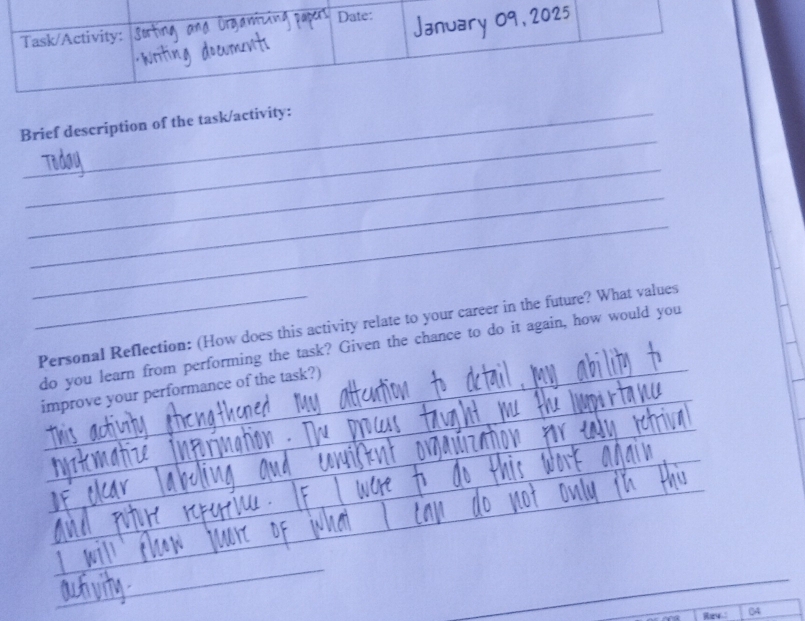 Task/Activity: Sorting and Organizing papers Date: January 09, 2025
- Writing documents
Brief description of the task/activity:
Today
Personal Reflection: (How does this activity relate to your career in the future? What values
do you learn from performing the task? Given the chance to do it again, how would you
improve your performance of the task?)
This activity strengthened my attention to detail, my ability to
systematize information. The process taught me the importance
of clear labeling and consistent organization for easy retrival
and future reference. If I were to do this work again
I will show more of what I can do not only in this
activity.
Rev.: 04